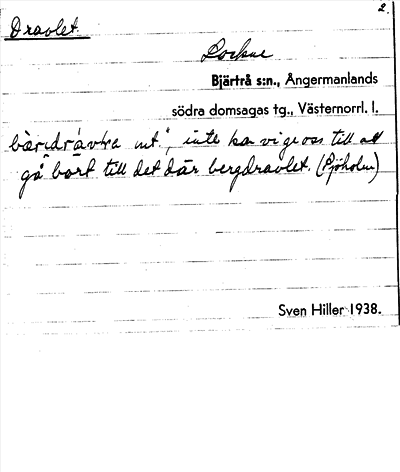 2.
Dravlet.
Lockne
Bjärtrå s:n., Ångermanlands
södra domsagas tg., Västernorrl. l.
nt", inte ka vi ge oss till att
gå bort till det där bergdravlet. (Sjöholm)
Sven Hiller 1938.